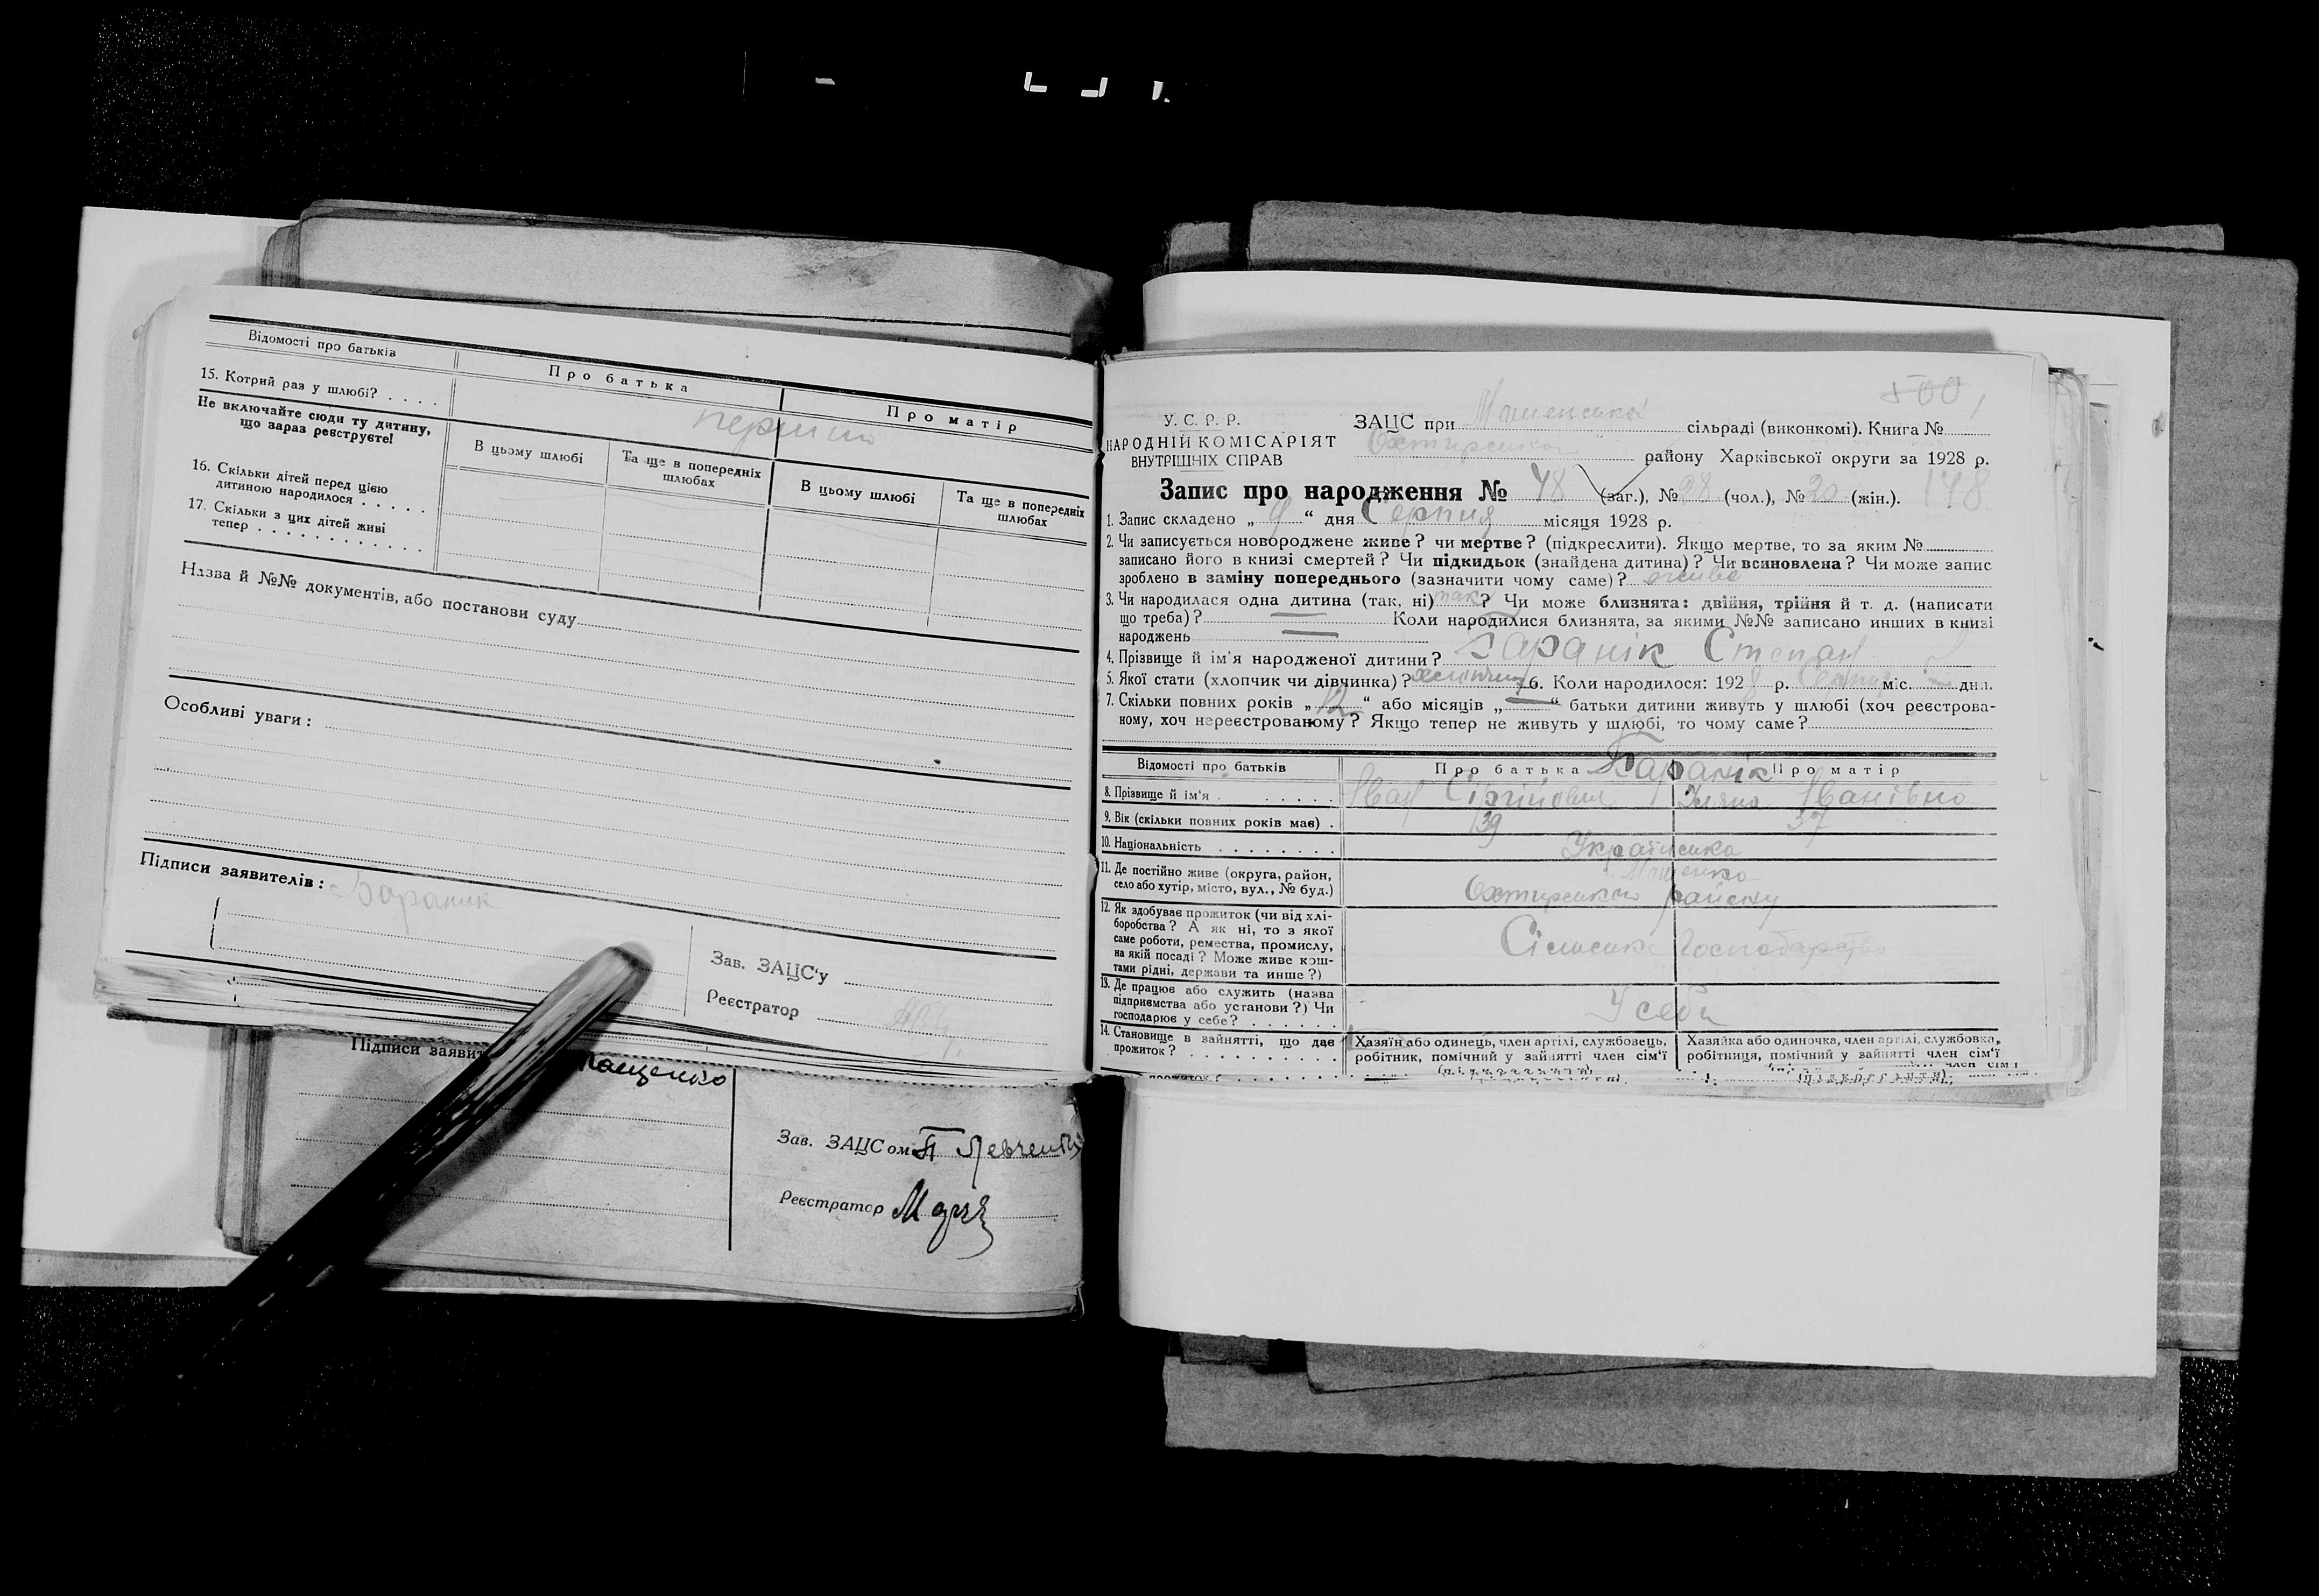 Відомості про батьків
Про батька
Про матір
15. Котрий раз у шлюбі? . . . .
Не включайте сюди ту дитину,
що зараз реєструєте!
В цьому шлюбі
Та ще в попередніх
шлюбах
В цьому шлюбі
Та ще в попередніх
шлюбах
16. Скільки дітей перед цією
дитиною народилося . . . . .
17. Скільки з цих дітей живі
тепер . . . . . . . . . . . .
Назва й №№ документів, або постанови суду
Особливі уваги:
Підписи заявителів: Бараник
Зав. ЗАЦС'у
Реєстратор
Підписи заявит
Зав. ЗАЦСом П Левченко
Реєстратор
500
У. С. Р. Р.
НАРОДНІЙ КОМІСАРІЯТ
ВНУТРІШНІХ СПРАВ
ЗАЦС при Мошенській сільраді (виконкомі). Книга №
Охтирського району Харківської округи за 1928 р.
Запис про народження № 48 (заг.), № 28 (чол.), № 20 (жін.). 148
1. Запис складено „ 9 “ дня Серпня місяця 1928 р.
2. Чи записується новороджене живе? чи мертве? (підкреслити). Якщо мертве, то за яким №
записано його в книзі смертей? Чи підкидьок (знайдена дитина)? Чи всиновлена? Чи може запис
зроблено в заміну попереднього (зазначити чому саме)? живе
3. Чи народилася одна дитина (так, ні) так? Чи може близнята: двійня, трійня й т. д. (написати
що треба)? Коли народилися близнята, за якими №№ записано инших в книзі
народжень
4. Прізвище й ім'я народженої дитини? Баранік Степан
5. Якої стати (хлопчик чи дівчинка)? хлопчик 6. Коли народилося: 1928 р. Серпня міс. 2 дня.
7. Скільки повних років „ 12 “ або місяців „ — “ батьки дитини живуть у шлюбі (хоч реєстрова-
ному, хоч нереєстрованому? Якщо тепер не живуть у шлюбі, то чому саме?
Відомості про батьків
Про батька Баранік Про матір
8. Прізвище й ім'я . . . . . . Іван Сергійович Уляна Іванівна
9. Вік (скільки повних років має) . 39 37
10. Національність . . . . . . . . Українська
11. Де постійно живе (округа, район,
село або хутір, місто, вул., № буд.)
Мошенка
Охтирського району
12. Як здобуває прожиток (чи від хлі-
боробства? А як ні, то з якої
саме роботи, ремества, промислу,
на якій посаді? Може живе кош-
тами рідні, держави та инше?)
Сільське Господарство
13. Де працює або служить (назва
підприємства або установи?) Чи
господарює у себе? . . . . . .
У себе
14. Становище в зайнятті, що дає
прожиток? . . . . . . . . . .
Хазяїн або одинець, член артілі, службовець,
робітник, помічний у зайнятті член сім'ї
Хазяйка або одиночка, член артілі, службовка,
робітниця, помічний у зайнятті член сім'ї